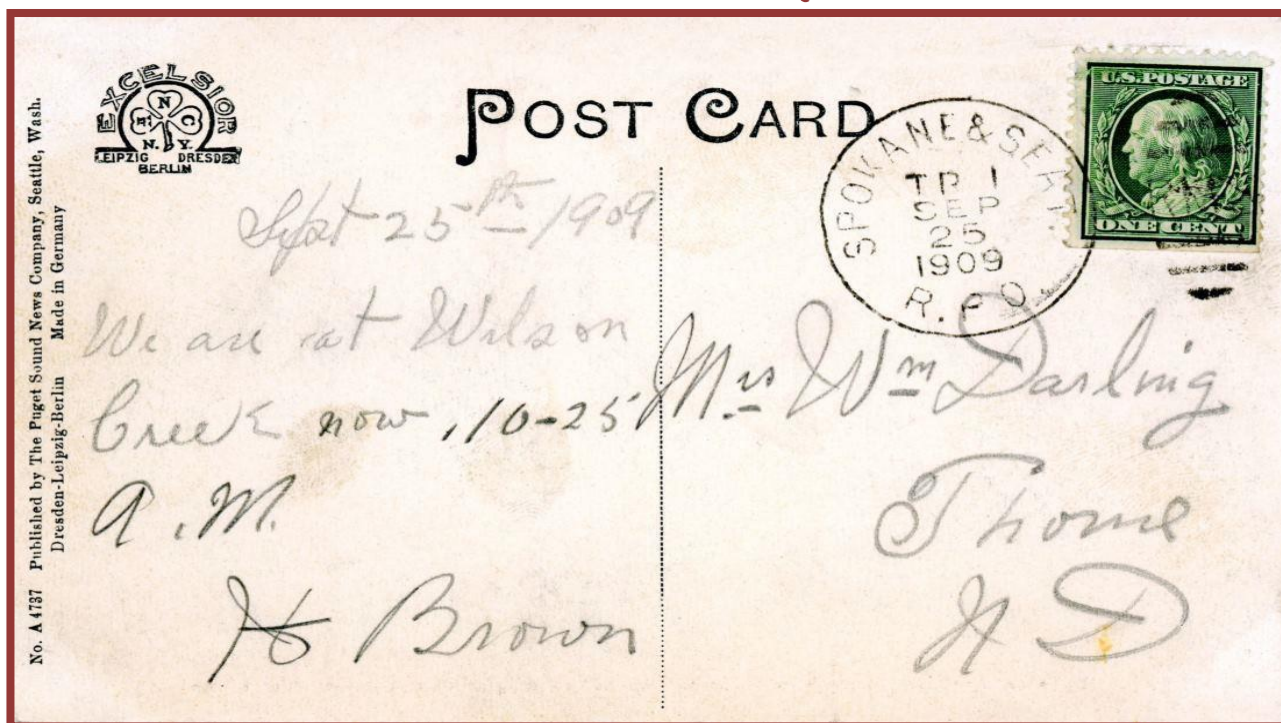 No. A 4737 Published by The Puget Sound News Company, Seattle, Wash.
Dresden-Leipzig-Berlin Made in Germany
EXCELSIOR
N
C
N.Y.
LEIPZIG DRESDEN
BERLIN
POST CARD
SPOKANE & SEAT
TR 1
SEP
25
1909
R.P.O.
U.S. POSTAGE
ONE CENT
Sept 25th 1909
We are at Wilson
Creek now, 10-25
A.M.
H Brown
Mrs Wm Darling
Thorne
N D